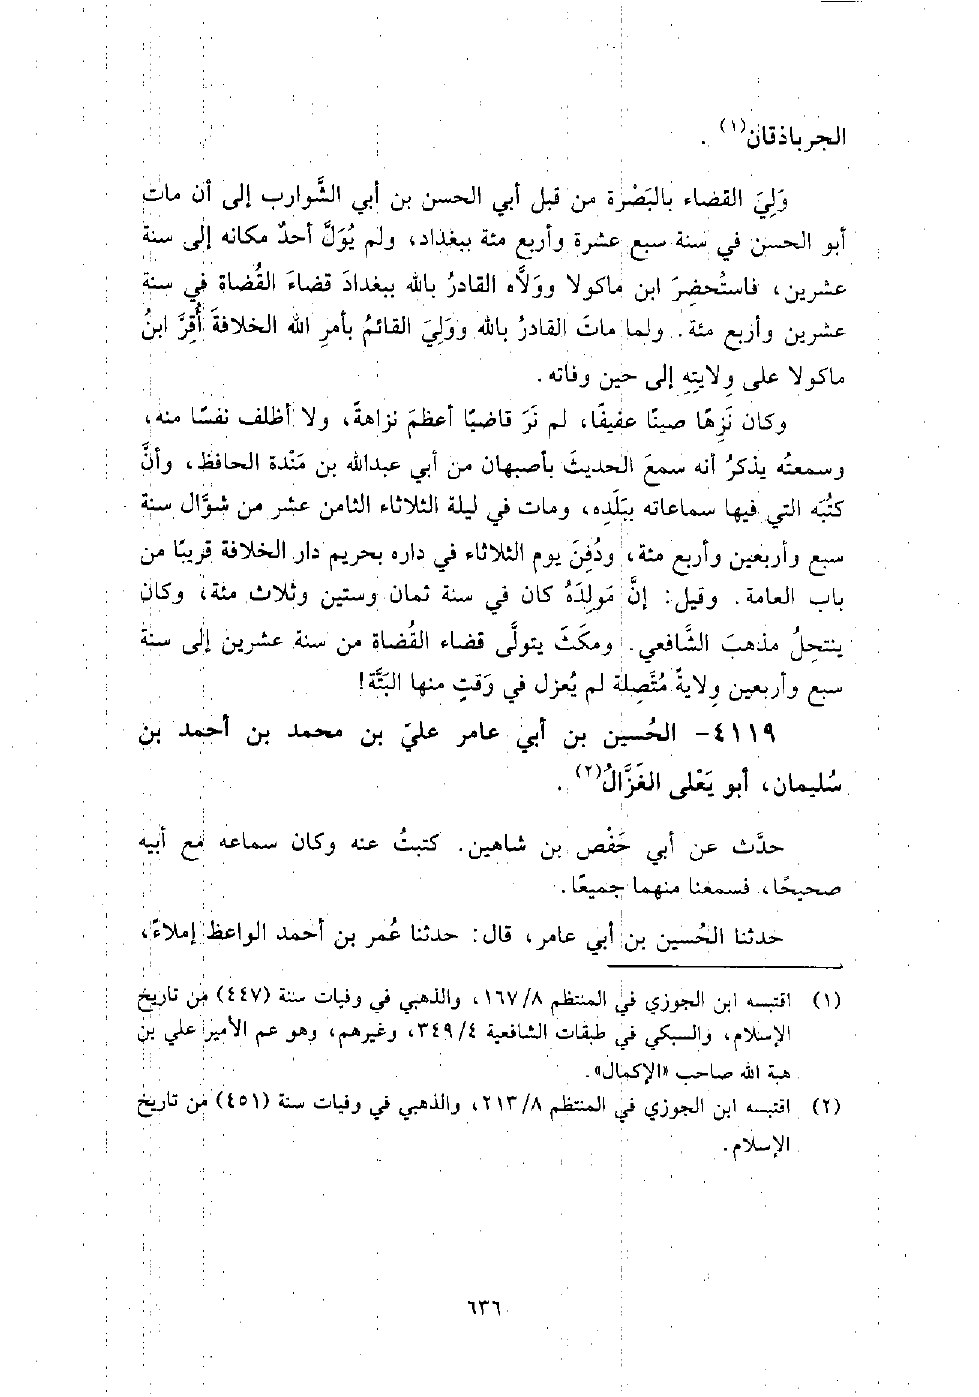 الجرباذقان(١) .
وَلِيَ القضاء بالبَصْرة من قبل أبي الحسن بن أبي الشَّوارب إلى أن مات
أبو الحسن في سنة سبع عشرة وأربع مئة ببغداد، ولم يُوَلَّ أحدٌ مكانه إلى سنة
عشرين، فاستُحضِرَ ابن ماكولا ووَلاَّه القادرُ بالله ببغدادَ قضاءَ القُضاة في سنة
عشرين وأربع مئة. ولما ماتَ القادرُ بالله ووَلِيَ القائمُ بأمرِ الله الخلافةَ أُقِرَّ ابنُ
ماكولا على وِلايتِهِ إلى حين وفاته.
وكان نَزِهًا صينًا عفيفًا، لم نَرَ قاضيًا أعظمَ نزاهةً، ولا أظلف نفسًا منه،
وسمعتُه يذكرُ أنه سمعَ الحديثَ بأصبهان من أبي عبدالله بن مَنْدة الحافظ، وأنَّ
كتُبَه التي فيها سماعاته ببَلَدِه، ومات في ليلة الثلاثاء الثامن عشر من شوَّال سنة
سبع وأربعين وأربع مئة، ودُفِنَ يوم الثلاثاء في داره بحريم دار الخلافة قريبًا من
باب العامة. وقيل: إنَّ مَولِدَهُ كان في سنة ثمان وستين وثلاث مئة، وكان
ينتحِلُ مذهبَ الشَّافعي. ومكَثَ يتولَّى قضاء القُضاة من سنة عشرين إلى سنة
سبع وأربعين وِلايةً مُتَّصِلة لم يُعزل في وَقتٍ منها البَتَّة!
٤١١٩- الحُسين بن أبي عامر عليّ بن محمد بن أحمد بن
سُليمان، أبو يَعْلى الغَزَّالُ(٢) .
حدَّث عن أبي حَفْص بن شاهين. كتبتُ عنه وكان سماعه مع أبيه
صحيحًا، فسمعنا منهما جميعًا.
حدثنا الحُسين بن أبي عامر، قال: حدثنا عُمر بن أحمد الواعظ إملاءً،
(١) اقتبسه ابن الجوزي في المنتظم ٨/ ١٦٧، والذهبي في وفيات سنة (٤٤٧) من تاريخ
الإسلام، والسبكي في طبقات الشافعية ٤/ ٣٤٩، وغيرهم، وهو عم الأمير علي بن
هبة الله صاحب «الإكمال».
(٢) اقتبسه ابن الجوزي في المنتظم ٨/ ٢١٣، والذهبي في وفيات سنة (٤٥١) من تاريخ
الإسلام.
٦٣٦